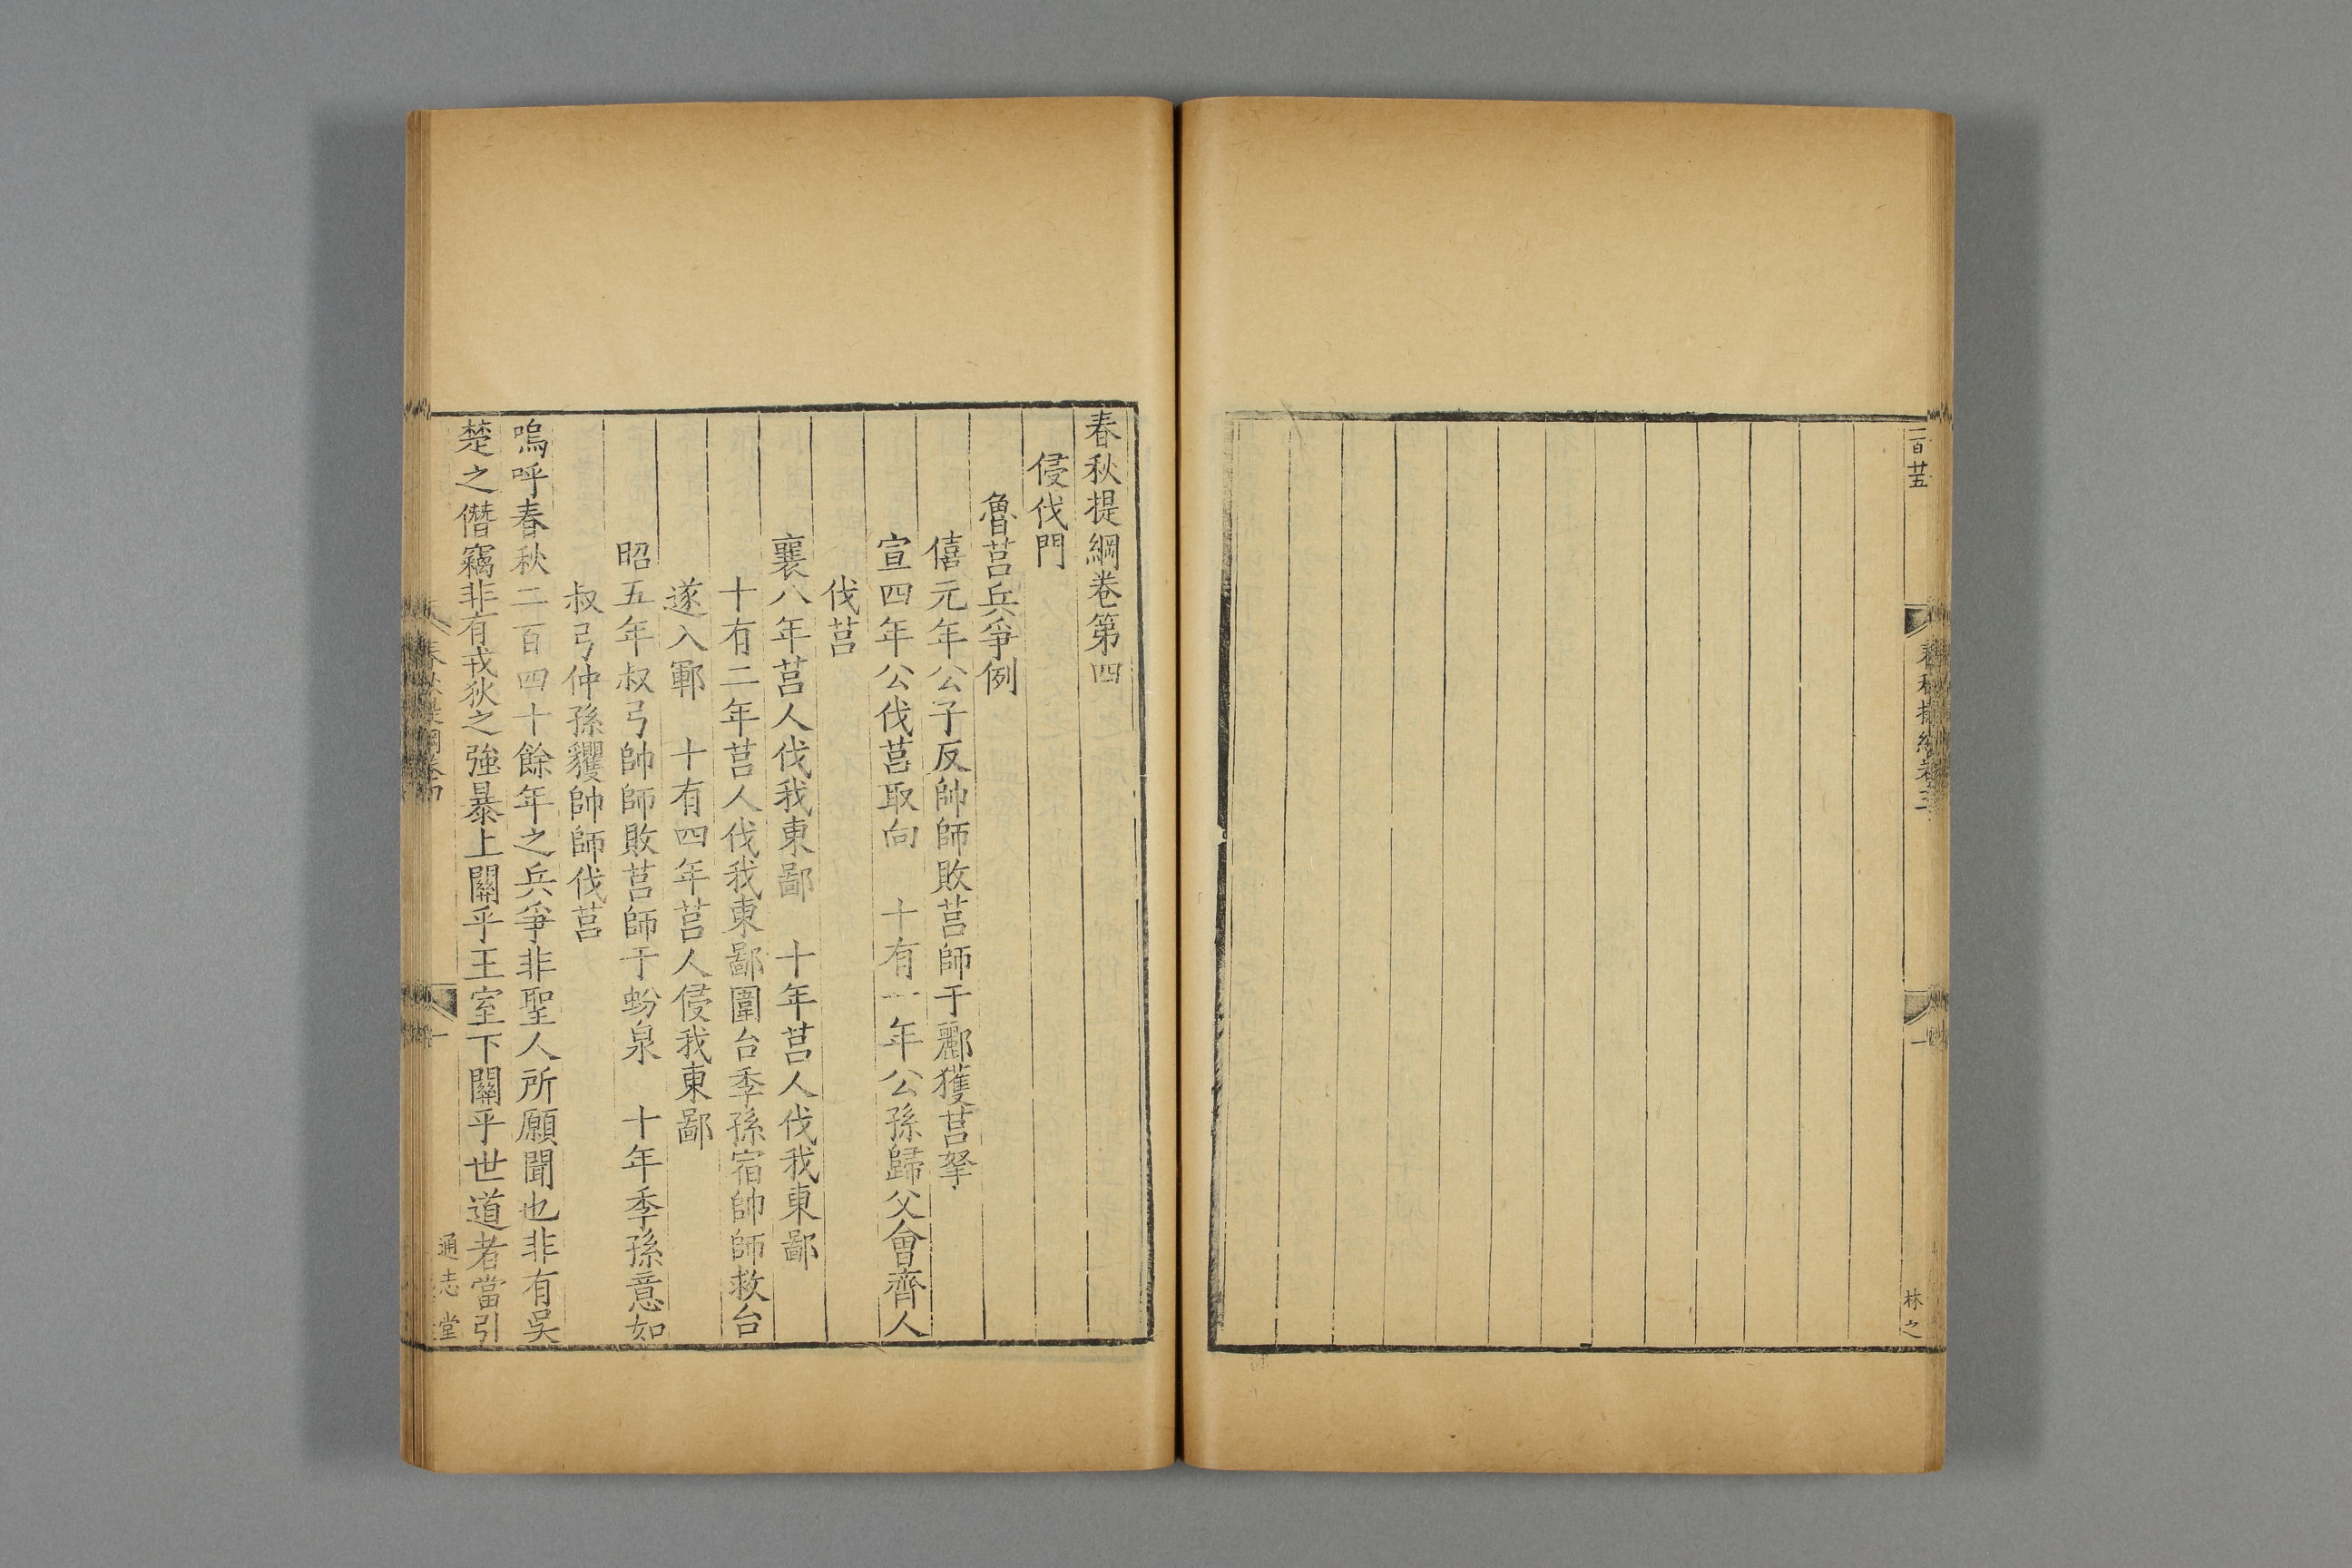 一百廿五
春秋提綱卷三
一
林之
春秋提綱卷第四
侵伐門
魯莒兵爭例
僖元年公子反帥師敗莒師于酈獲莒挐
宣四年公伐莒取向　十有一年公孫歸父會齊人
伐莒
襄八年莒人伐我東鄙　十年莒人伐我東鄙
十有二年莒人伐我東鄙圍台季孫宿帥師救台
遂入鄆　十有四年莒人侵我東鄙
昭五年叔弓帥師敗莒師于蚡泉　十年季孫意如
叔弓仲孫貜帥師伐莒
嗚呼春秋二百四十餘年之兵爭非聖人所願聞也非有吳
楚之僭竊非有戎狄之強暴上關乎王室下關乎世道者當引
春秋提綱卷四
一
通志堂